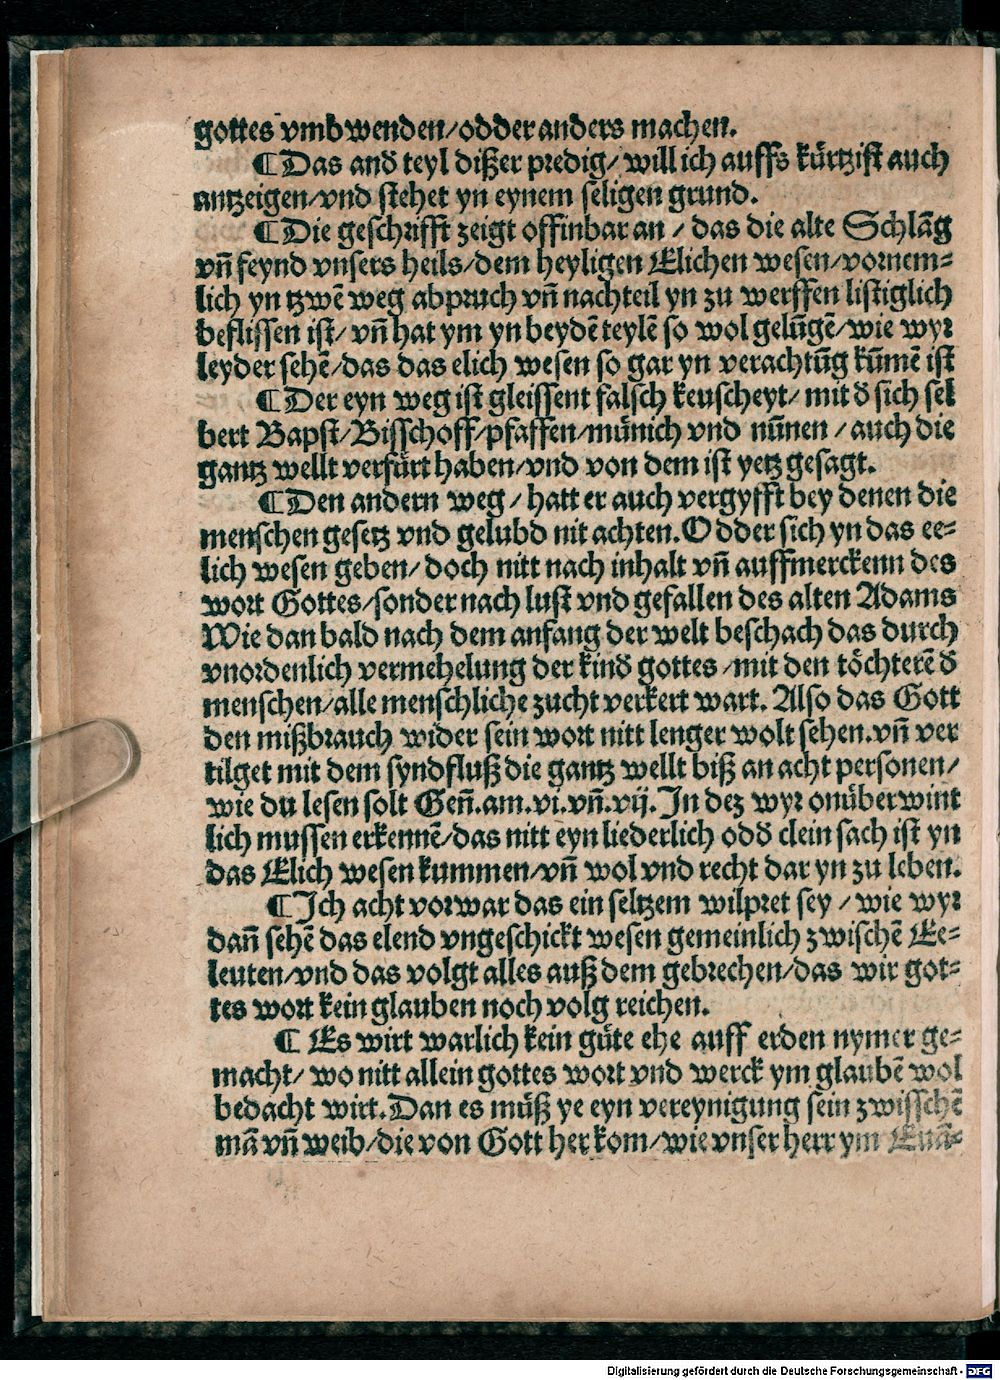 gottes vmbwenden/odder anders machen.
¶Das and̃ teyl dißer predig/ will ich auffs kürtzist auch
antzeigen/vnd stehet yn eynem seligen grund.
¶Die geschrifft zeigt offinbar an / das die alte Schlãg
vñ feynd vnsers heils/dem heyligen Elichen wesen/vornem⸗
lich yn tzwẽ weg abpruch vñ nachteil yn zu werffen listiglich
beflissen ist/ vñ hat ym yn beydẽ teylẽ so wol gelũgẽ/wie wyr
leyder sehẽ/das das elich wesen so gar yn verachtũg kũmẽ ist
¶Der eyn weg ist gleissent falsch keuscheyt/ mit d̃ sich sel
bert Bapst/Bisschoff/pfaffen/münich vnd nũnen / auch die
gantz wellt verfürt haben/vnd von dem ist yetz gesagt.
¶Den andern weg / hatt er auch vergyfft bey denen die
menschen gesetz vnd gelubd nit achten. Odder sich yn das ee⸗
lich wesen geben/ doch nitt nach inhalt vñ auffmerckenn des
wort Gottes/sonder nach lust vnd gefallen des alten Adams
Wie dan bald nach dem anfang der welt beschach das durch
vnordenlich vermehelung der kind̃ gottes /mit den töchterẽ d̃
menschen/alle menschliche zucht verkert wart. Also das Gott
den mißbrauch wider sein wort nitt lenger wolt sehen.vñ ver
tilget mit dem syndfluß die gantz wellt biß an acht personen/
wie du lesen solt Geñ.am.vi.vñ.vij.In dez wyr onüberwint
lich mussen erkennẽ/das nitt eyn liederlich odd̃ clein sach ist yn
das Elich wesen kummen/vñ wol vnd recht dar yn zu leben.
¶Ich acht vorwar das ein seltzem wilpret sey / wie wyr
dañ sehẽ das elend vngeschickt wesen gemeinlich zwischẽ Ee⸗
leuten/vnd das volgt alles auß dem gebrechen/das wir got⸗
tes wort kein glauben noch volg reichen.
¶ Es wirt warlich kein güte ehe auff erden nymer ge⸗
macht/ wo nitt allein gottes wort vnd werck ym glaubẽ wol
bedacht wirt.Dan es müß ye eyn vereynigung sein zwisschẽ
mã vñ weib/die von Gott her kom/wie vnser herr ym Euã⸗
Digitalisierung gefördert durch die Deutsche Forschungsgemeinschaft - DFG